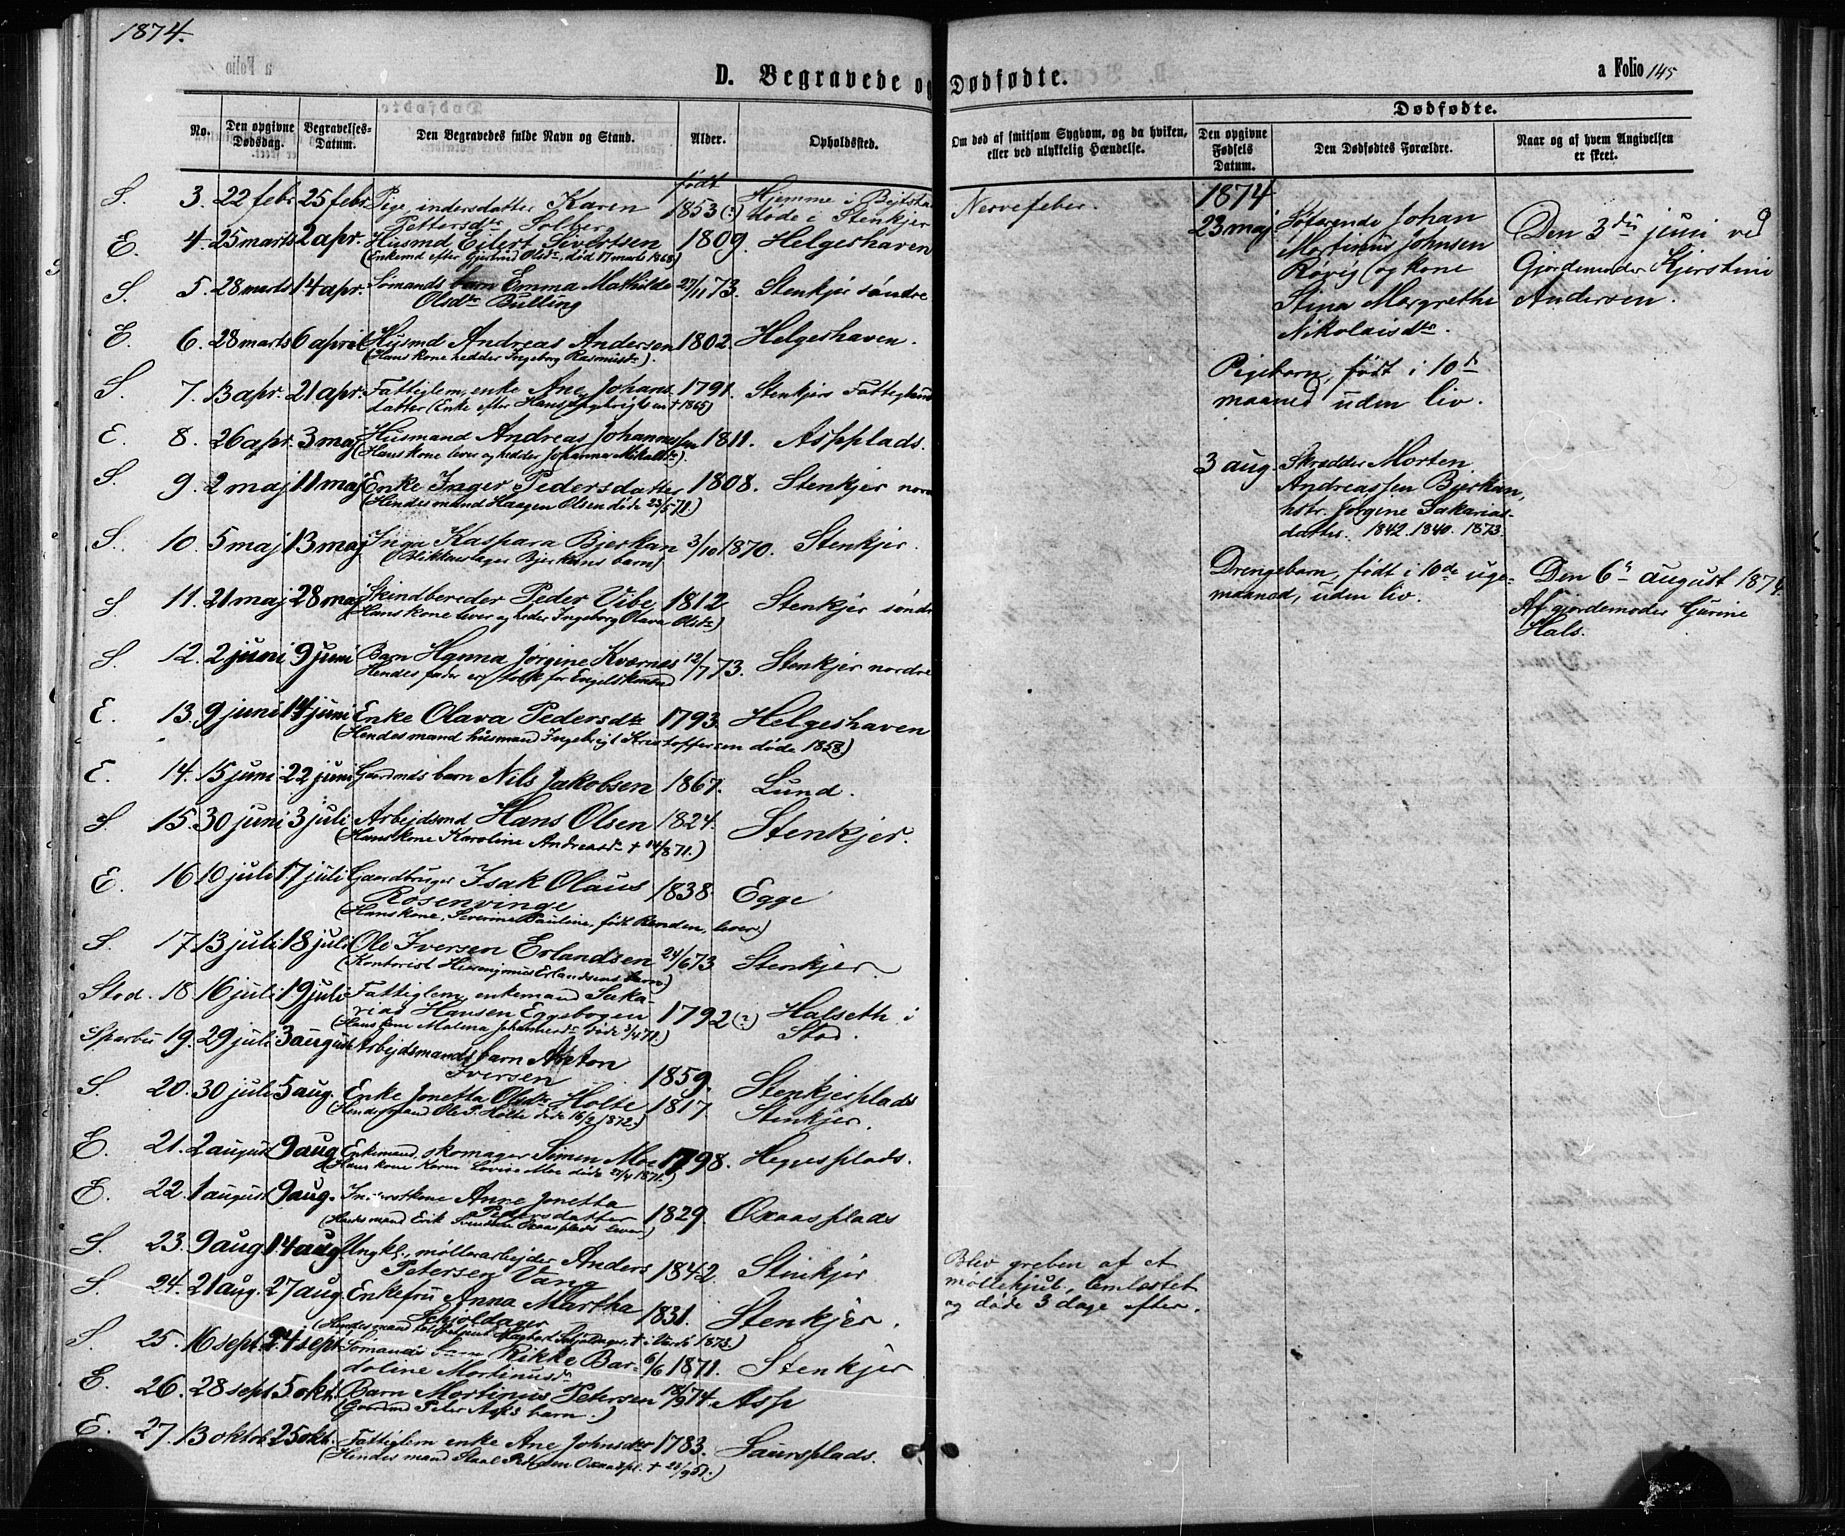 1874.
D. Begravede og Dødfødte.
a Folio 145
No.
Den opgivne Dødsdag.
Begravelses-Datum.
Den Begravedes fulde Navn og Stand.
Alder.
Opholdssted.
Om død af smitsom Sygdom, og da hviken, eller ved ulykkelig Hændelse.
Dødfødte.
Den opgivne Fødsels Datum.
Den Dødfødtes Forældre.
Naar og af hvem Angivelsen er skeet.
S. 3. 22 febr 25 febr Pige, indersdatter Karen født 1853 (?) Hjemme i Beitsta
Pettersdr Solberg døde i Stenkjer Nervefeber.
E. 4. 25 marts 2 apr. Husmd Eilert Sivertsen 1809. Helgeshaven
(Enkemd efter Gjertrud Olsdr, død 17 marts 1868)
S. 5. 28 marts 14 apr. Sömands barn Emma Mathilde 27/11 73. Stenkjer søndre
Olsdtr Bulling
E. 6. 28 marts 6 april Husmd Andreas Andersen 1802. Helgeshaven.
(Hans kone hedder Ingeborg Rasmusdr.)
S. 7. 13 apr. 21 apr. Fattiglem, enke Ane Johans 1791. Stenkjers Fattighus
datter (Enke efter Hans † 1865)
E. 8. 26 apr. 3 maj Husmand Andreas Johannessen 1811. Aspplads.
(Hans kone lever og hedder Johanna Mikalsdr).
S. 9. 2 maj 11 maj Enke Inger Pedersdatter 1808. Stenkjer nor
(Hendes mand Haagen Olsen døde 23/5 71.)
S. 10. 5 maj 13 maj Inga Kaspara Bjerkan 3/10 1870. Stenkjer.
(Blikkenslager Bjerkans barn)
S 11. 21 maj 28 maj Skindbereder Peder Vibe 1812 Stenkjer sønd
(Hans kone lever og heder Ingeborg Olava Olsdr)
S. 12. 2 juni 9 juni Barn Hanna Jørgine Kvernes 12/7 73. Stenkjer nordre
Hendes fader er tolk for Engelskmænd
E. 13. 9 juni 14 juni Enke Olava Pedersdtr 1793. Helgeshaven
(Hendes mand husmand Ingebrigt Kristoffersen døde 1858)
E. 14. 15 juni 22 juni Gaardmds barn Nils Jakobsen 1867. Lund.
S. 15. 30 juni 3 juli Arbejdsmd Hans Olsen 1824. Stenkjer.
(Hans kone Karoline Andreasdr † 14/8 71.)
E. 16 10 juli 17 juli Gaardbruger Isak Olaus 1838. Egge
Rosenvinge
(Hans kone, Severine Pauline, født Randen, lever)
S. 17. 13 juli 18 juli Ole Iversen Erlandsen 24/6 73. Stenkjer.
(Kontorist Hieronymus Erlandsens barn)
Stod. 18. 16 juli 19 juli Fattiglem, enkemand Saka-
rias Hansen Eggebogen 1792 (?) Halseth i
(Hans kone Malena Johannesdr døde 3/4 71.) Stod.
Sparbu 19. 29 juli 3 august Arbejdsmands barn Anton
Iversen 1859. Stenkjerplads
S. 20. 30 juli 5 aug. Enke Jonetta Olsdr Holte 1817. Stenkjer.
(Hendes mand Ole P. Holte døde 16/2 1872)
E. 21. 2 august 9 aug. Enkemand, skomager Simen Moe 1798. Heggesplads.
(Hans kone Karen Lovise Moe døde 27/4 1871.)
E. 22. 1 august 9 aug. Anne Jonetta
Pedersdatter 1829. Oxaasplads
(Hendes mand Erik Svendsen Oxaasplads lever)
S. 23. 9 aug 14 aug. Ungkl., møllerarbejder Anders 1842. Stenkjer
Petersen Vang
Blev greben af et
møllehjul, lemlæstet
og døde 3 dage efter.
S. 24. 21 aug. 27 aug. Enkefru Anna Martha 1831. Stenkjer.
Schjoldager
(Hendes mand Schjoldager, † i 1873.)
S. 25. 16 sept 24 sept Sömands barn Rikke Bar- 6/6 1871. Stenkjer
doline Mortinusdr
E. 26. 28 sept 5 okt. Barn Mortinus Petersen 18/9 74. Asp
(Gaardmd Peter Asps barn.)
E. 27. 13 oktob. 25 okt. Fattiglem enke Ane Johnsdtr 1783. Saursplads.
(Hendes mand Pedersen Oxaaspl. †)
1874
23 maj Søfarende Johan
Martinus Johnsen
Røvig og kone
Stina Margrethe
Nikolaisdtr.
Pigebarn, født i 10de
maaned uden liv.
Den 3die juni ved
Gjordemoder Kjerstine
Andersen.
3 aug. Skrædder Morten
Andreassen Bjerkan,
hstr. Jørgine Sakarias-
datter. 1842. 1840. 1873.
Drengebarn, født i 10de uge-
maaned, uden liv.
Den 6te august 1874.
Af gjordemoder Gurine
Hals.